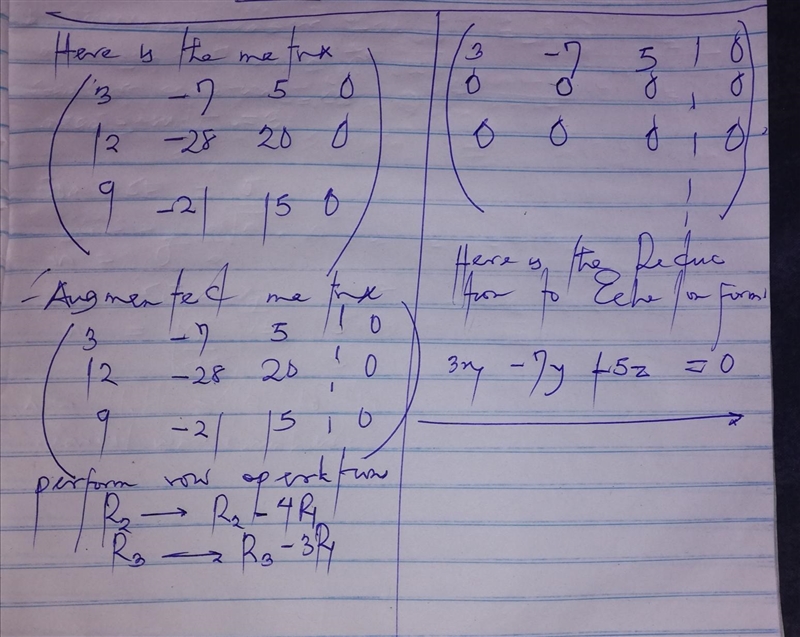 Here is the matrix
3 -7 5 0
12 -28 20 0
9 -21 15 0
- Augmented matrix
3 -7 5 | 0
12 -28 20 | 0
9 -21 15 | 0
perform row operation
R₂ → R₂ - 4R₁
R₃ → R₃ - 3R₁
3 -7 5 | 0
0 0 0 | 0
0 0 0 | 0
Here is the Reduc
tion to Echelon form
3x - 7y + 5z = 0